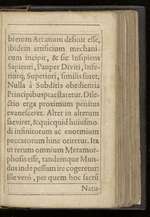 bierum Arcanum desiisse esse,
ibidem artificium mechani-
cum incipit, & sic Inspiens
Sapienti, Pauper Diviti, Infe-
rior Superiori, similis fiaret,
Nulla à Subditis obedientia
Principibus præstaretur. Dile-
ctio erga proximum penitus
evanesceret. Alter in alterum
sæviret, & quicquid huiusmo-
di infinitorum ac enormium
peccatorum hinc oriretur. Ita
ut rerum omnium Metamor-
phosis esset, tandemque Mun-
dus inde pessum ire cogeretur:
sive verò, per quem hoc factū
Natu-